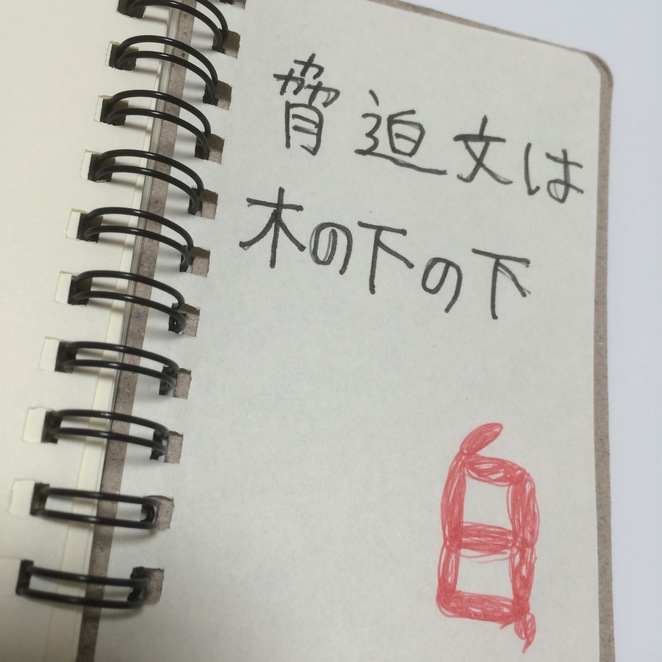 脅迫文は
木の下の下
白